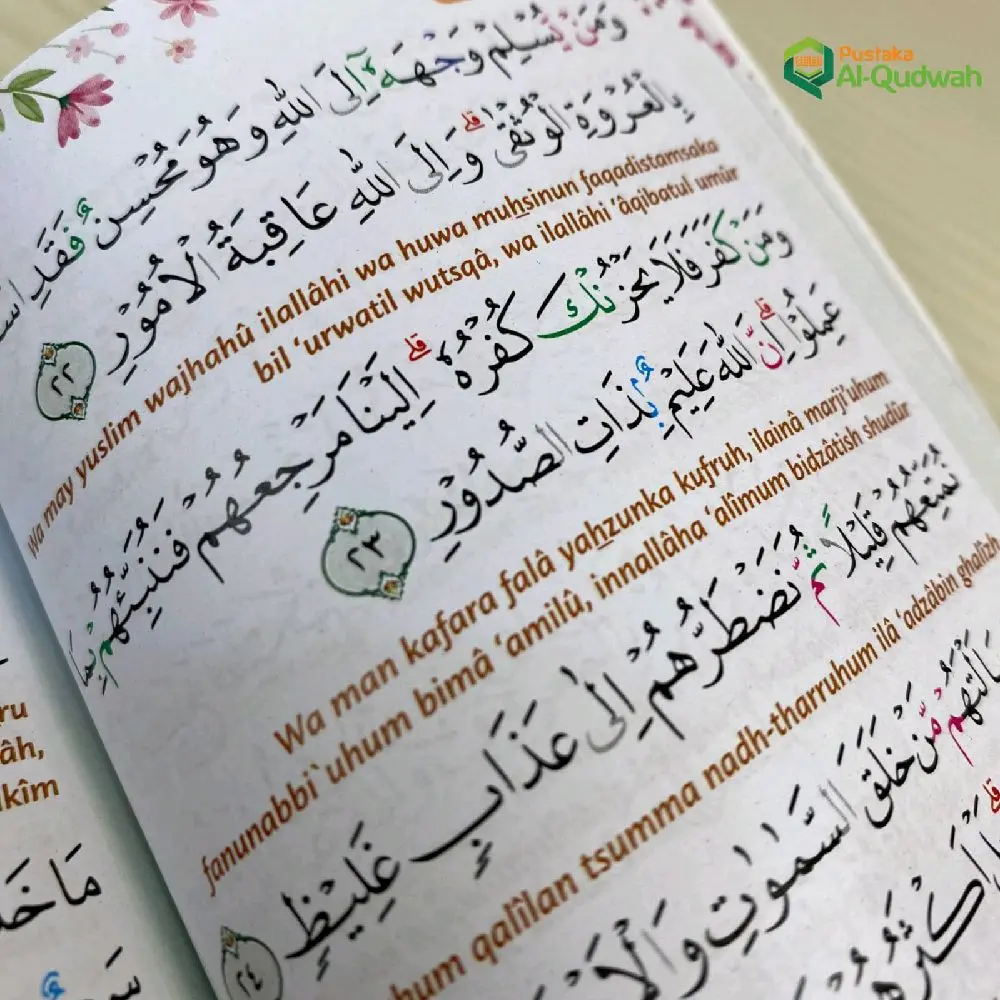 Pustaka
Al-Qudwah
وَمَنْ يُّسْلِمْ وَجْهَهٗٓ اِلَى اللّٰهِ وَهُوَ مُحْسِنٌ فَقَدِ
بِالْعُرْوَةِ الْوُثْقٰىۗ وَاِلَى اللّٰهِ عَاقِبَةُ الْاُمُوْرِ ٢٢
Wa may yuslim wajhahû ilallâhi wa huwa muhsinun faqadistamsaka
bil ‘urwatil wutsqâ, wa ilallâhi ‘âqibatul umûr
وَمَنْ كَفَرَ فَلَا يَحْزُنْكَ كُفْرُهٗۗ اِلَيْنَا مَرْجِعُهُمْ فَنُنَبِّئُهُمْ بِمَا
عَمِلُوْاۗ اِنَّ اللّٰهَ عَلِيْمٌۢ بِذَاتِ الصُّدُوْرِ ٢٣
Wa man kafara falâ yahzunka kufruh, ilainâ marji‘uhum
fanunabbi`uhum bimâ ‘amilû, innallâha ‘alîmum bidzâtish shudûr
نُمَتِّعُهُمْ قَلِيْلًا ثُمَّ نَضْطَرُّهُمْ اِلٰى عَذَابٍ غَلِيْظٍ ٢٤
hum qalîlan tsumma nadh-tharruhum ilâ ‘adzâbin ghalîzh
سَاَلْتَهُمْ مَّنْ خَلَقَ السَّمٰوٰتِ
اَكْثَرُهُمْ
ru
âh,
kîm
مَا